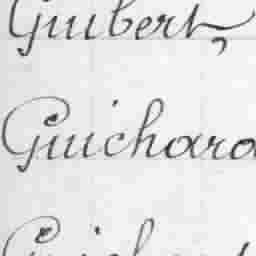 Guibert,
Guichard